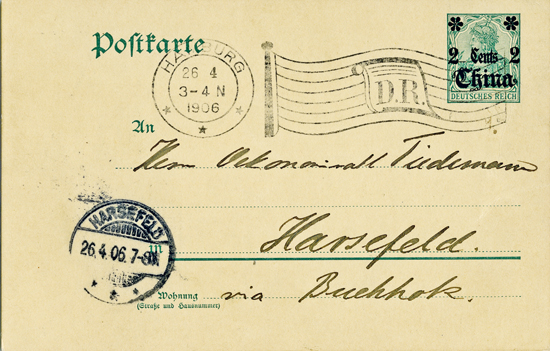 Postkarte
HAMBURG
26 4
3-4 N
1906
* * *
D.R.
* *
2 Cents 2
China
DEUTSCHES REICH
An
Herrn Oekonomierath Tiedemann
HARSEFELD
26.4.06.7-8N.
* * *
in
Harsefeld.
Wohnung
(Straße und Hausnummer)
via Buchholz.